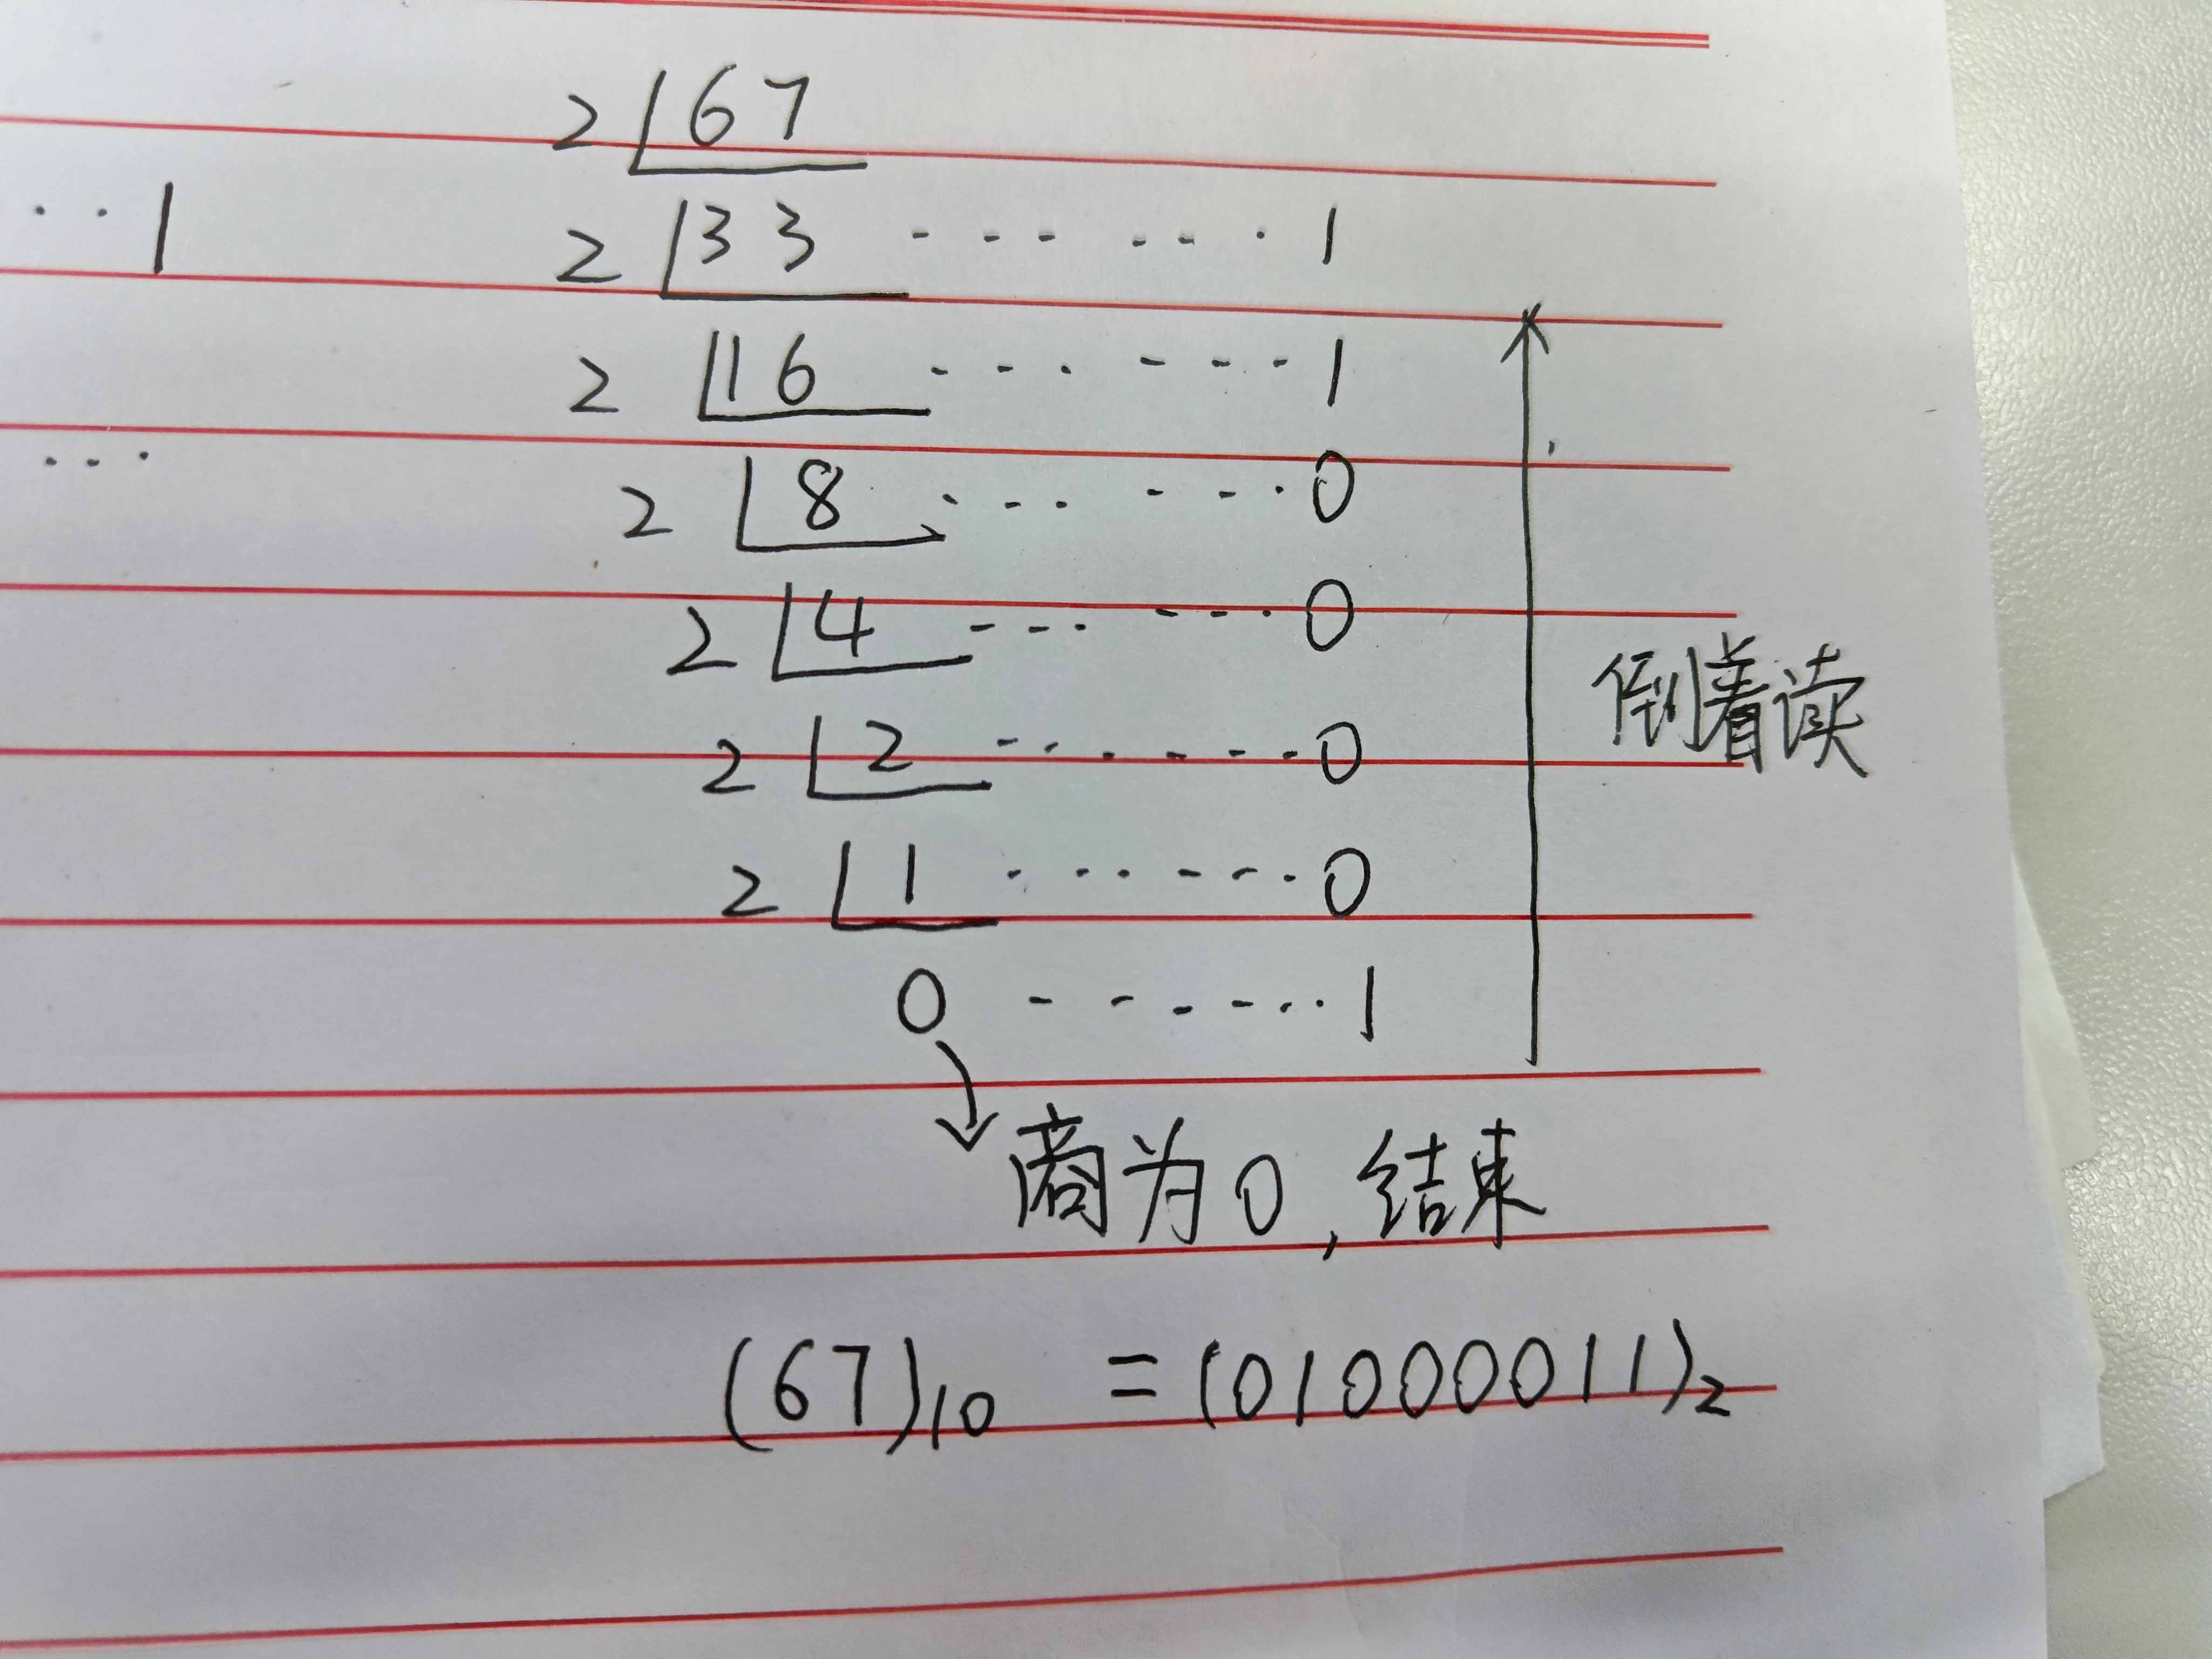 2 67
···1 2 33 ········· 1
2 16 ········· 1
··· 2 8 ········· 0
2 4 ········· 0
2 2 ········· 0
2 1 ········· 0
0 ········· 1
倒着读
商为0,结束
(67)10 = (01000011)2